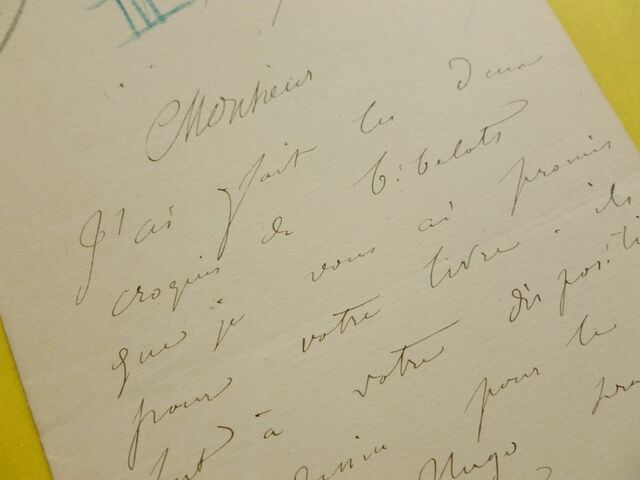 Monsieur
J'ai fait les deux
croquis de bibelots
que je vous ai promis
pour votre livre. ils
sont à votre dispositi
dessin pour le
Hugo